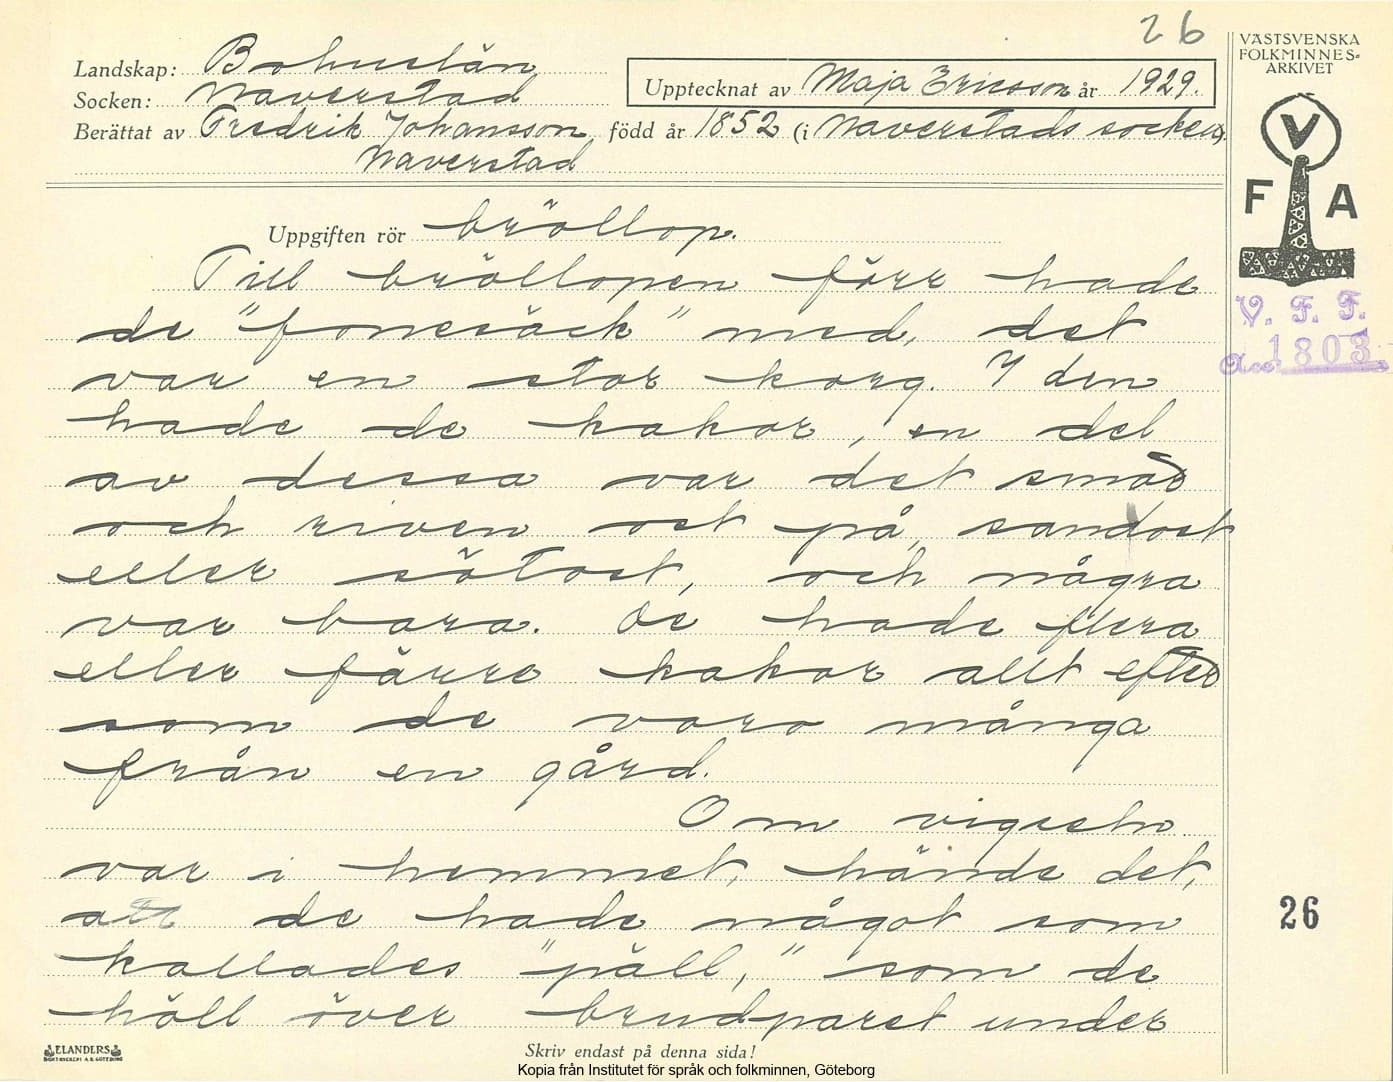 26
VÄSTSVENSKA
FOLKMINNES-
ARKIVET
Landskap: Bohuslän
Socken: Naverstad
Upptecknat av Maja Ericsson år 1929.
Berättat av Fredrik Johansson född år 1852 (i Naverstads socken).
Naverstad
V
F A
V. F. F.
Acc. 1803
Uppgiften rör bröllop.
Till bröllopen förr hade
de "fonesäck" med, det
var en stor korg. I den
hade de kakor, en del
av dessa var det smör
och riven ost på, sandost
eller sötost, och några
var bara. De hade flera
eller färre kakor allt efter
som de voro många
från en gård.
Om vigseln
var i hemmet, hände det,
att de hade något som
kallades "päll," som de
höll över brudparet under
26
ELANDERS
BOKTRYCKERI A.B. GÖTEBORG
Skriv endast på denna sida!
Kopia från Institutet för språk och folkminnen, Göteborg